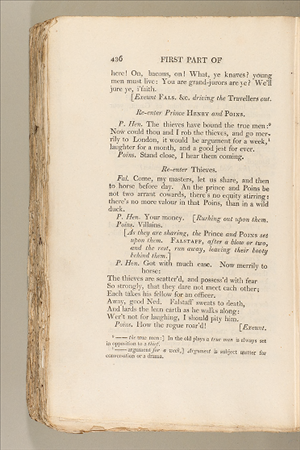 426 FIRST PART OF
here! On, bacons, on! What, ye knaves? young
men must live: You are grand-jurors are ye? We'll
jure ye, i'faith.
[Exeunt FALS. &c. driving the Travellers out.
Re-enter Prince HENRY and POINS.
P. Hen. The thieves have bound the true men:⁸
Now could thou and I rob the thieves, and go mer-
rily to London, it would be argument for a week,⁹
laughter for a month, and a good jest for ever.
Poins. Stand close, I hear them coming.
Re-enter Thieves.
Fal. Come, my masters, let us share, and then
to horse before day. An the prince and Poins be
not two arrant cowards, there's no equity stirring:
there's no more valour in that Poins, than in a wild
duck.
P. Hen. Your money. [Rushing out upon them.
Poins. Villains.
[As they are sharing, the Prince and POINS set
upon them. FALSTAFF, after a blow or two,
and the rest, run away, leaving their booty
behind them.]
P. Hen. Got with much ease. Now merrily to
horse:
The thieves are scatter'd, and possess'd with fear
So strongly, that they dare not meet each other;
Each takes his fellow for an officer.
Away, good Ned. Falstaff sweats to death,
And lards the lean earth as he walks along:
Wer't not for laughing, I should pity him.
Poins. How the rogue roar'd! [Exeunt.
⁸ —— the true men:] In the old plays a true man is always set
in opposition to a thief.
⁹ —— argument for a week,] Argument is subject matter for
conversation or a drama.